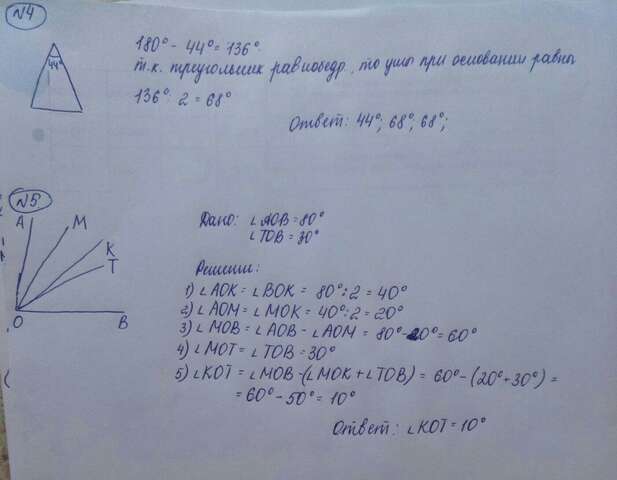 №4
44°
180° - 44° = 136°.
т.к. треугольник равнобедр., то углы при основании равны
136° : 2 = 68°
Ответ: 44°; 68°; 68°;
№5
A
M
K
T
O
B
Дано: ∠AOB = 80°
∠TOB = 30°
Решение:
1) ∠AOK = ∠BOK = 80° : 2 = 40°
2) ∠AOM = ∠MOK = 40° : 2 = 20°
3) ∠MOB = ∠AOB - ∠AOM = 80° - 20° = 60°
4) ∠MOT = ∠TOB = 30°
5) ∠KOT = ∠MOB - (∠MOK + ∠TOB) = 60° - (20° + 30°) =
= 60° - 50° = 10°
Ответ: ∠KOT = 10°